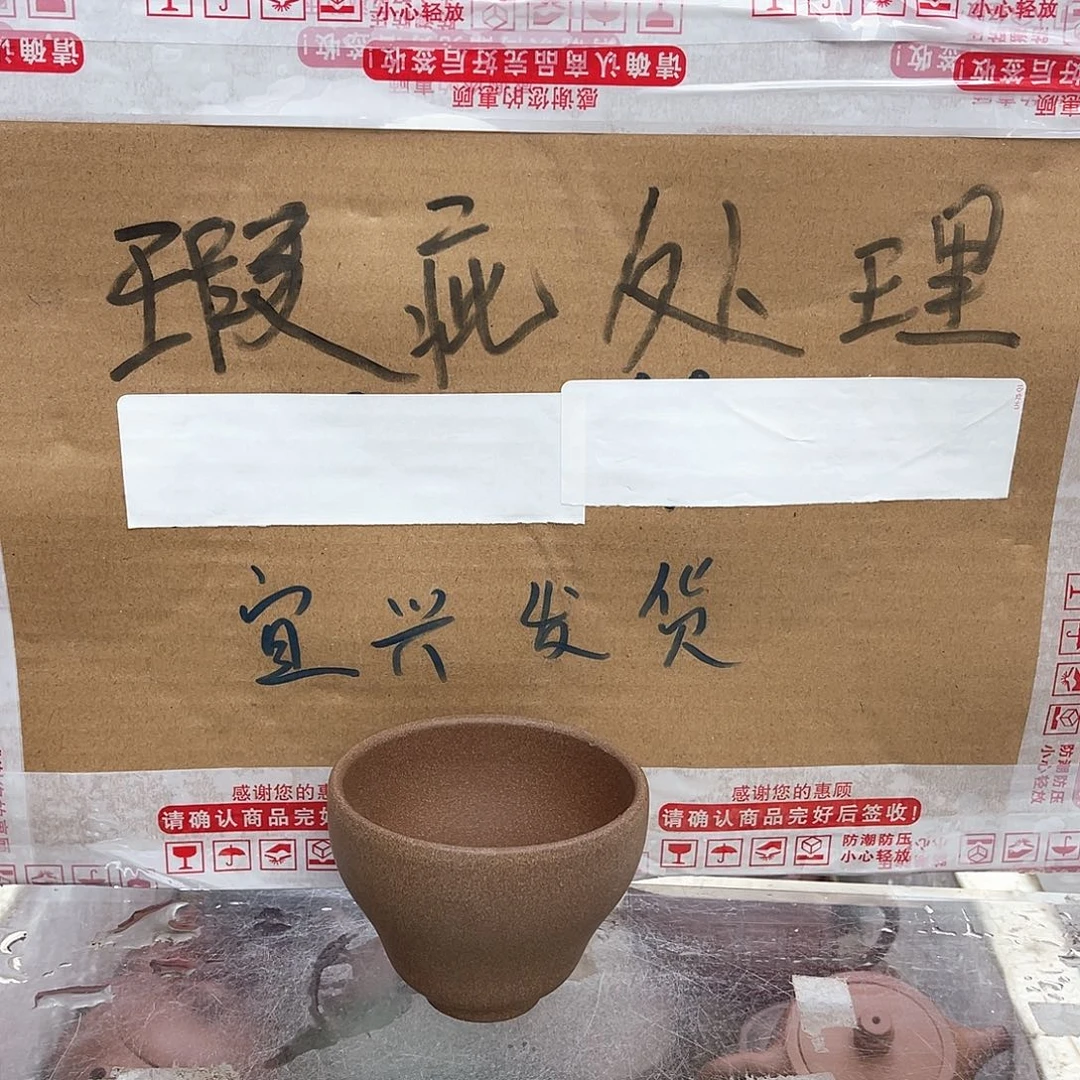 小心轻放
小心轻放
请确认
请确认商品完好后签收!
请确认商品完好后签收!
感谢您的惠顾
瑕疵处理
宜兴发货
感谢您的惠
请确认商品完好
感谢您的惠顾
请确认商品完好后签收!
防潮防压
小心轻放
防潮防压
小心轻放